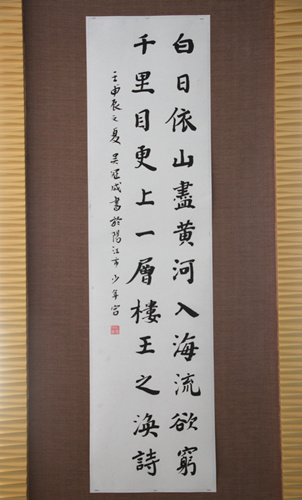 白日依山盡黄河入海流欲窮
千里目更上一層樓王之渙詩
壬申長之夏 吴冠成書於陽江市少年宮